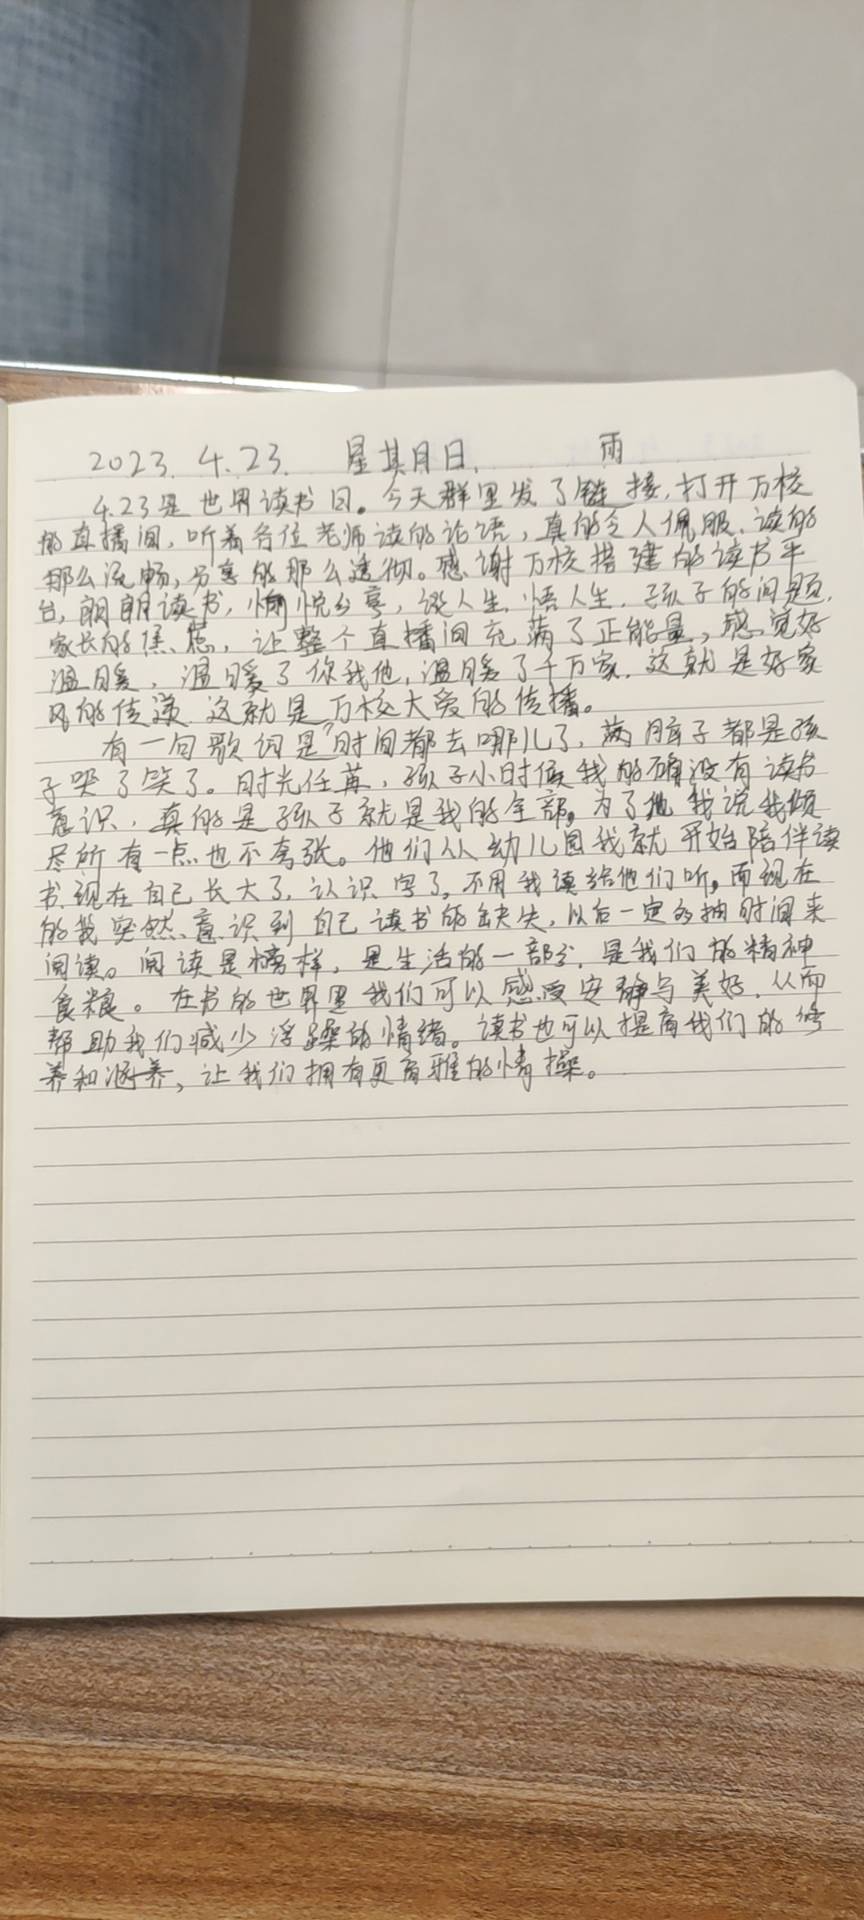 2023. 4.23. 星其月日. 雨
4.23是世界读书日。今天群里发了链接,打开万校
的直播间,听着各位老师读的论语,真的令人佩服.读的
那么流畅,分享的那么透彻。感谢万校搭建的读书平
台,朗朗读书,悦分享,谈人生.悟人生.孩子的问题.
家长的焦虑,让整个直播间充满了正能量,感觉好
温暖,温暖了你我他,温暖了千万家.这就是好家
风的传递.这就是万校大爱的传播。
有一句歌词是"时间都去哪儿了,满脑子都是孩
子哭了笑了。时光荏苒,孩子小时候我的确没有读书
意识,真的是孩子就是我的全部。为了他我说我倾
尽所有一点也不夸张。他们从幼儿园我就开始陪伴读
书.现在自己长大了.认识字了.不用我读给他们听。而现在
的我突然意识到自己读书的缺失,以后一定多抽时间来
阅读。阅读是榜样,是生活的一部分.是我们的精神
食粮。在书的世界里我们可以感受安静与美好.从而
帮助我们减少浮躁的情绪。读书也可以提高我们的修
养和涵养,让我们拥有更高雅的情操。